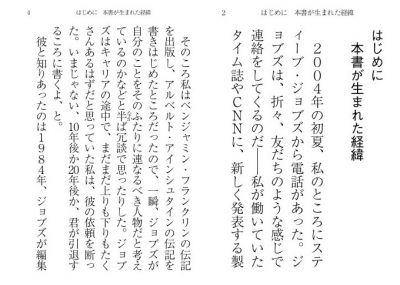 2
はじめに 本書が生まれた経緯
はじめに
本書が生まれた経緯
2004年の初夏、私のところにステ
ィーブ・ジョブズから電話があった。ジ
ョブズは、折々、友だちのような感じで
連絡をしてくるのだ――私が働いていた
タイム誌やCNNに、新しく発表する製
4
はじめに 本書が生まれた経緯
そのころ私はベンジャミン・フランクリンの伝記
を出版し、アルベルト・アインシュタインの伝記を
書きはじめたところだったので、一瞬、ジョブズが
自分のことをそのふたりに連なるべき人物だと考え
ているのかなどと半ば冗談で思ったりした。ジョブ
ズはキャリアの途中で、まだまだ上りも下りもたく
さんあるはずだと思っていた私は、彼の依頼を断っ
た。いまじゃない、10年後か20年後か、君が引退す
るころに書くよ、と。
彼と知りあったのは1984年、ジョブズが編集